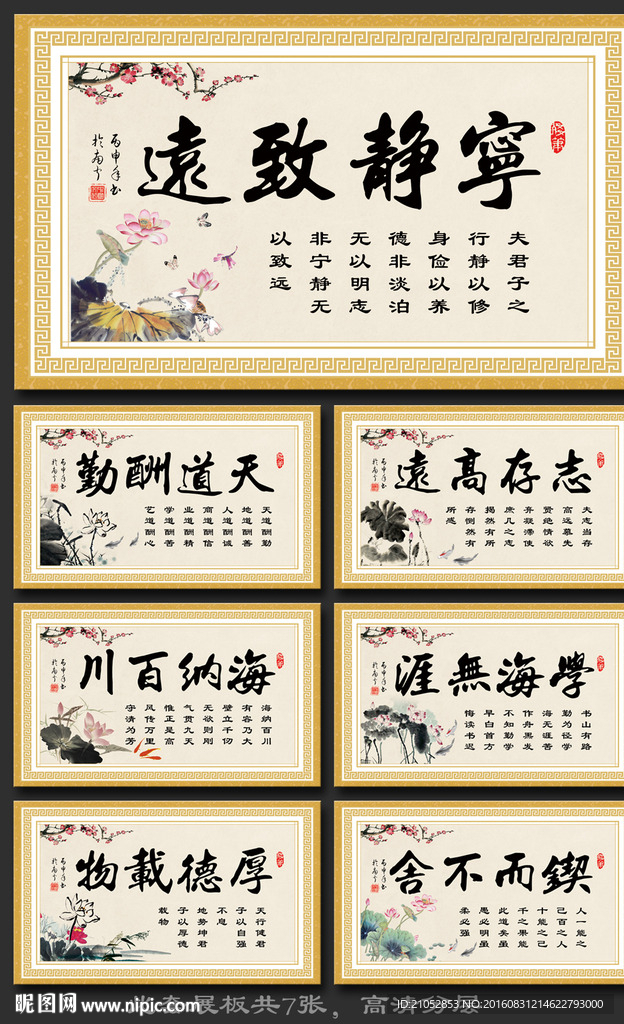 寧静致遠
夫君子之
行静以修
身俭以养
德非淡泊
无以明志
非宁静无
以致远
丙申年书
於南宁
天道酬勤
天道酬勤
地道酬善
人道酬诚
商道酬信
业道酬精
学道酬苦
艺道酬心
丙申年书
於南宁
志存高遠
夫志当存
高远慕先
贤绝情欲
弃凝滞使
庶几之志
揭然有所
存恻然有
所感
丙申年书
於南宁
海纳百川
海纳百川
有容乃大
壁立千仞
无欲则刚
气贯九天
惟正是高
风传万里
守清为芳
丙申年书
於南宁
學海無涯
书山有路
勤为径学
海无涯苦
作舟黑发
不知勤学
早白首方
悔读书迟
丙申年书
於南宁
厚德載物
天行健君
子以自强
不息
地势坤君
子以厚德
载物
丙申年书
於南宁
鍥而不舍
人一能之
己百之人
十能之己
千之果能
此道矣虽
愚必明虽
柔必强
丙申年书
於南宁
展板共7张，高清分层
昵图网 www.nipic.com
ID:21052853 NO:20160831214622793000